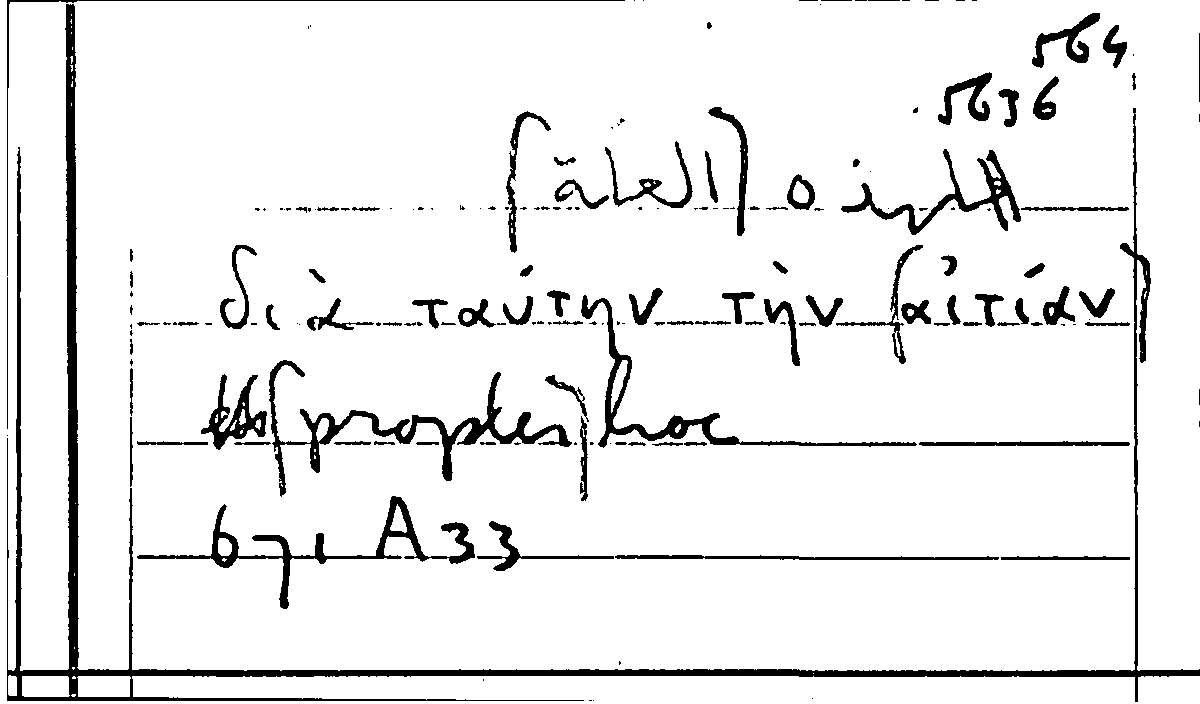 564
5636
διὰ ταύτην τὴν [αἰτίαν]
[propter] hoc
671 A 33